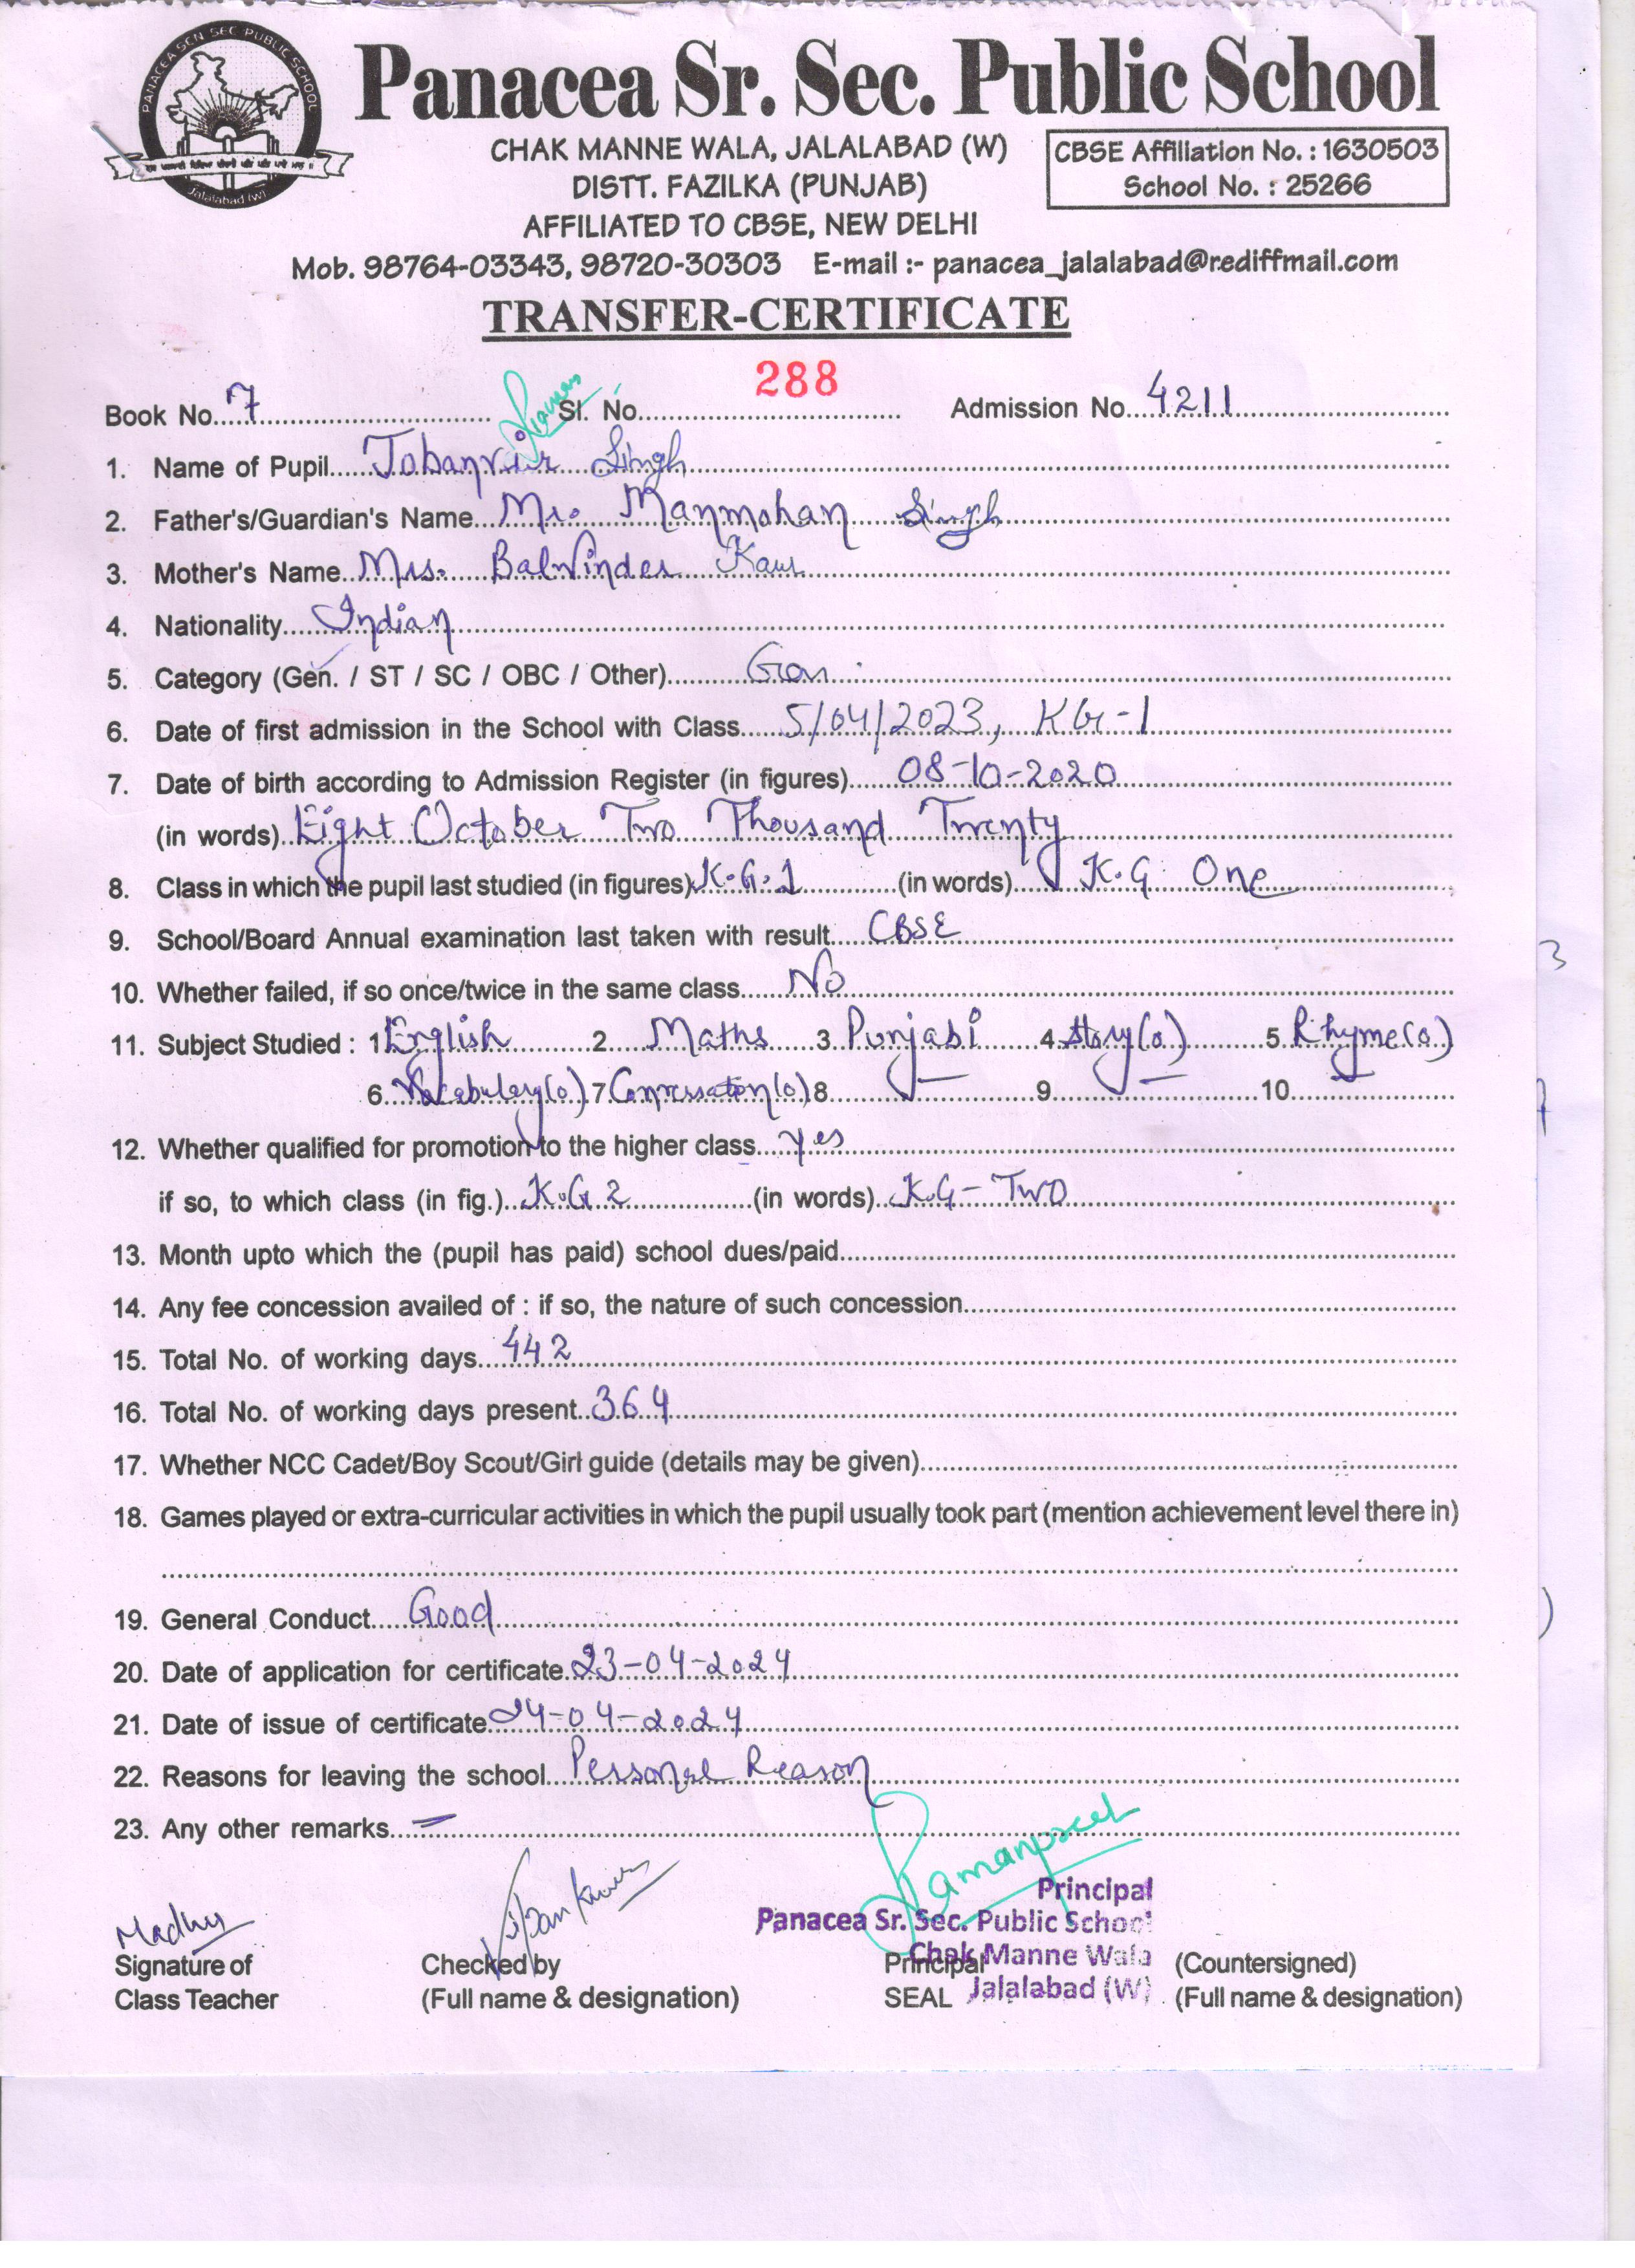 PANACEA SCN SEC PUBLIC SCHOOL
Jalalabad (W)
Panacea Sr. Sec. Public School
CHAK MANNE WALA, JALALABAD (W)
DISTT. FAZILKA (PUNJAB)
AFFILIATED TO CBSE, NEW DELHI
CBSE Affiliation No. : 1630503
School No. : 25266
Mob. 98764-03343, 98720-30303 E-mail :- panacea_jalalabad@rediffmail.com
TRANSFER-CERTIFICATE
Book No. 7 Sl. No. 288 Admission No. 4211
1. Name of Pupil Jobanvir Singh
2. Father's/Guardian's Name Mr. Manmohan Singh
3. Mother's Name Mrs. Balwinder Kaur
4. Nationality Indian
5. Category (Gen. / ST / SC / OBC / Other) Gen.
6. Date of first admission in the School with Class 5/04/2023, KG-1
7. Date of birth according to Admission Register (in figures) 08-10-2020
(in words) Eight October Two Thousand Twenty
8. Class in which the pupil last studied (in figures) K.G.1 (in words) K.G. One
9. School/Board Annual examination last taken with result CBSE
10. Whether failed, if so once/twice in the same class No
11. Subject Studied : 1 English 2 Maths 3 Punjabi 4 Story(o) 5 Rhyme(o)
6 Vocabulary(o) 7 Conversation(o) 8 — 9 — 10 —
12. Whether qualified for promotion to the higher class yes
if so, to which class (in fig.) K.G.2 (in words) K.G-Two
13. Month upto which the (pupil has paid) school dues/paid
14. Any fee concession availed of : if so, the nature of such concession
15. Total No. of working days 442
16. Total No. of working days present 364
17. Whether NCC Cadet/Boy Scout/Girl guide (details may be given)
18. Games played or extra-curricular activities in which the pupil usually took part (mention achievement level there in)
19. General Conduct Good
20. Date of application for certificate 23-04-2024
21. Date of issue of certificate 24-04-2024
22. Reasons for leaving the school Personal Reason
23. Any other remarks —
Madhu
Ramanpreet
Principal
Panacea Sr. Sec. Public School
Chak Manne Wala
Jalalabad (W)
Signature of Checked by Principal (Countersigned)
Class Teacher (Full name & designation) SEAL (Full name & designation)